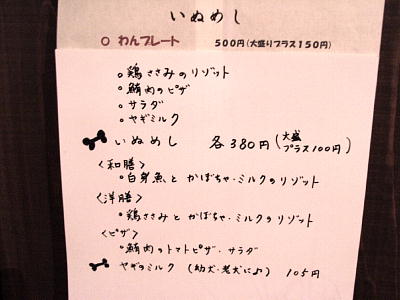 いぬめし
○ わんプレート 500円(大盛りプラス150円)
。鶏ささみのリゾット
。鮪肉のピザ
。サラダ
。ヤギミルク
いぬめし 各380円(大盛プラス100円)
〈和膳〉
・白身魚とかぼちゃ・ミルクのリゾット
〈洋膳〉
・鶏ささみとかぼちゃ・ミルクのリゾット
〈ピザ〉
・鮪肉のトマトピザ・サラダ
ヤギのミルク (幼犬・老犬に♪) 105円